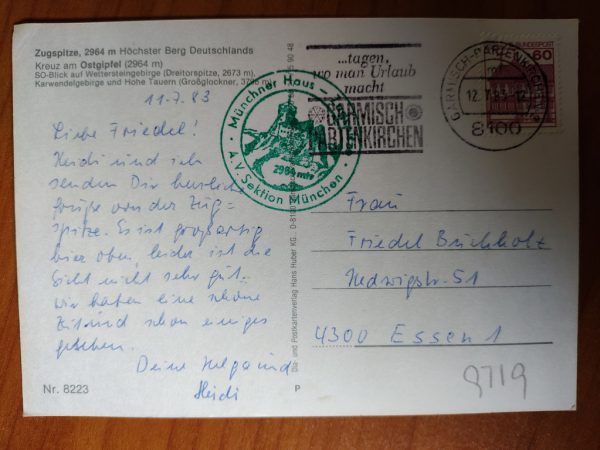 Zugspitze, 2964 m Höchster Berg Deutschlands
Kreuz am Ostgipfel (2964 m)
SO-Blick auf Wettersteingebirge (Dreitorspitze, 2673 m),
Karwendelgebirge und Hohe Tauern (Großglockner, 3796 m)
11.7.83
Liebe Friedel!
Heidi und ich
senden Dir herzliche
Grüße von der Zug=
spitze. Es ist großartig
hier oben, leider ist die
Sicht nicht sehr gut.
Wir haben eine schöne
Zeit und schon einiges
gesehen.
Deine Helga und
Heidi
Nr. 8223
Münchner Haus
2964 mtr
A.V. Sektion München
Dia- und Postkartenverlag Hans Huber KG
P
...tagen,
wo man Urlaub
macht
GARMISCH
PARTENKIRCHEN
GARMISCH-PARTENKIRCHEN
12.7.83
8100
BUNDESPOST
60
Frau
Friedel Buchholz
Hedwigstr. 51
4300 Essen 1
9719